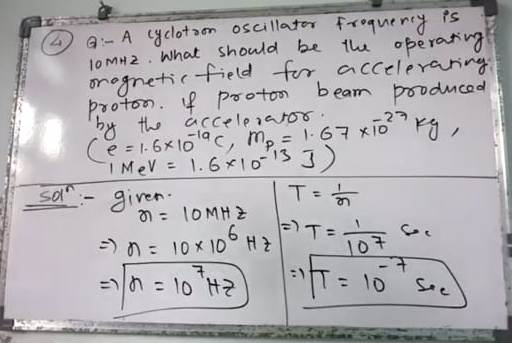 ④ Q:- A cyclotron oscillator frequency is
10 MHZ. What should be the operating
magnetic field for accelerating
proton. If proton beam produced
by the accelerator.
(e = 1.6×10⁻¹⁹C, mₚ = 1.67×10⁻²⁷ Kg,
1 MeV = 1.6×10⁻¹³ J)
Solⁿ:- given.
n = 10 MHZ
=> n = 10 × 10⁶ HZ
=> n = 10⁷ HZ
T = 1/n
=> T = 1/10⁷ Sec
=> T = 10⁻⁷ Sec